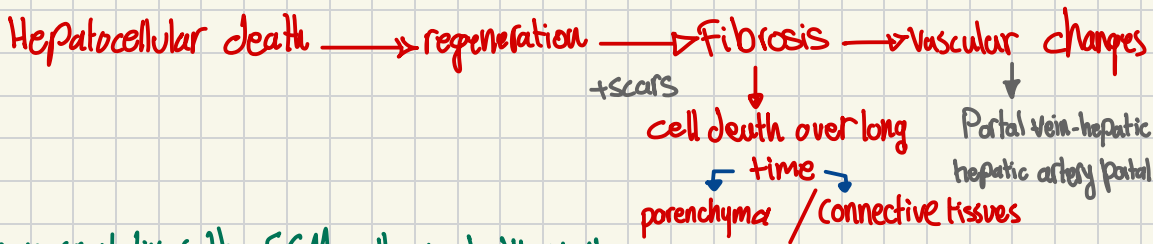 Hepatocellular death → regeneration → Fibrosis → vascular changes
+scars
cell death over long Portal vein-hepatic
time hepatic artery portal
parenchyma Connective tissues